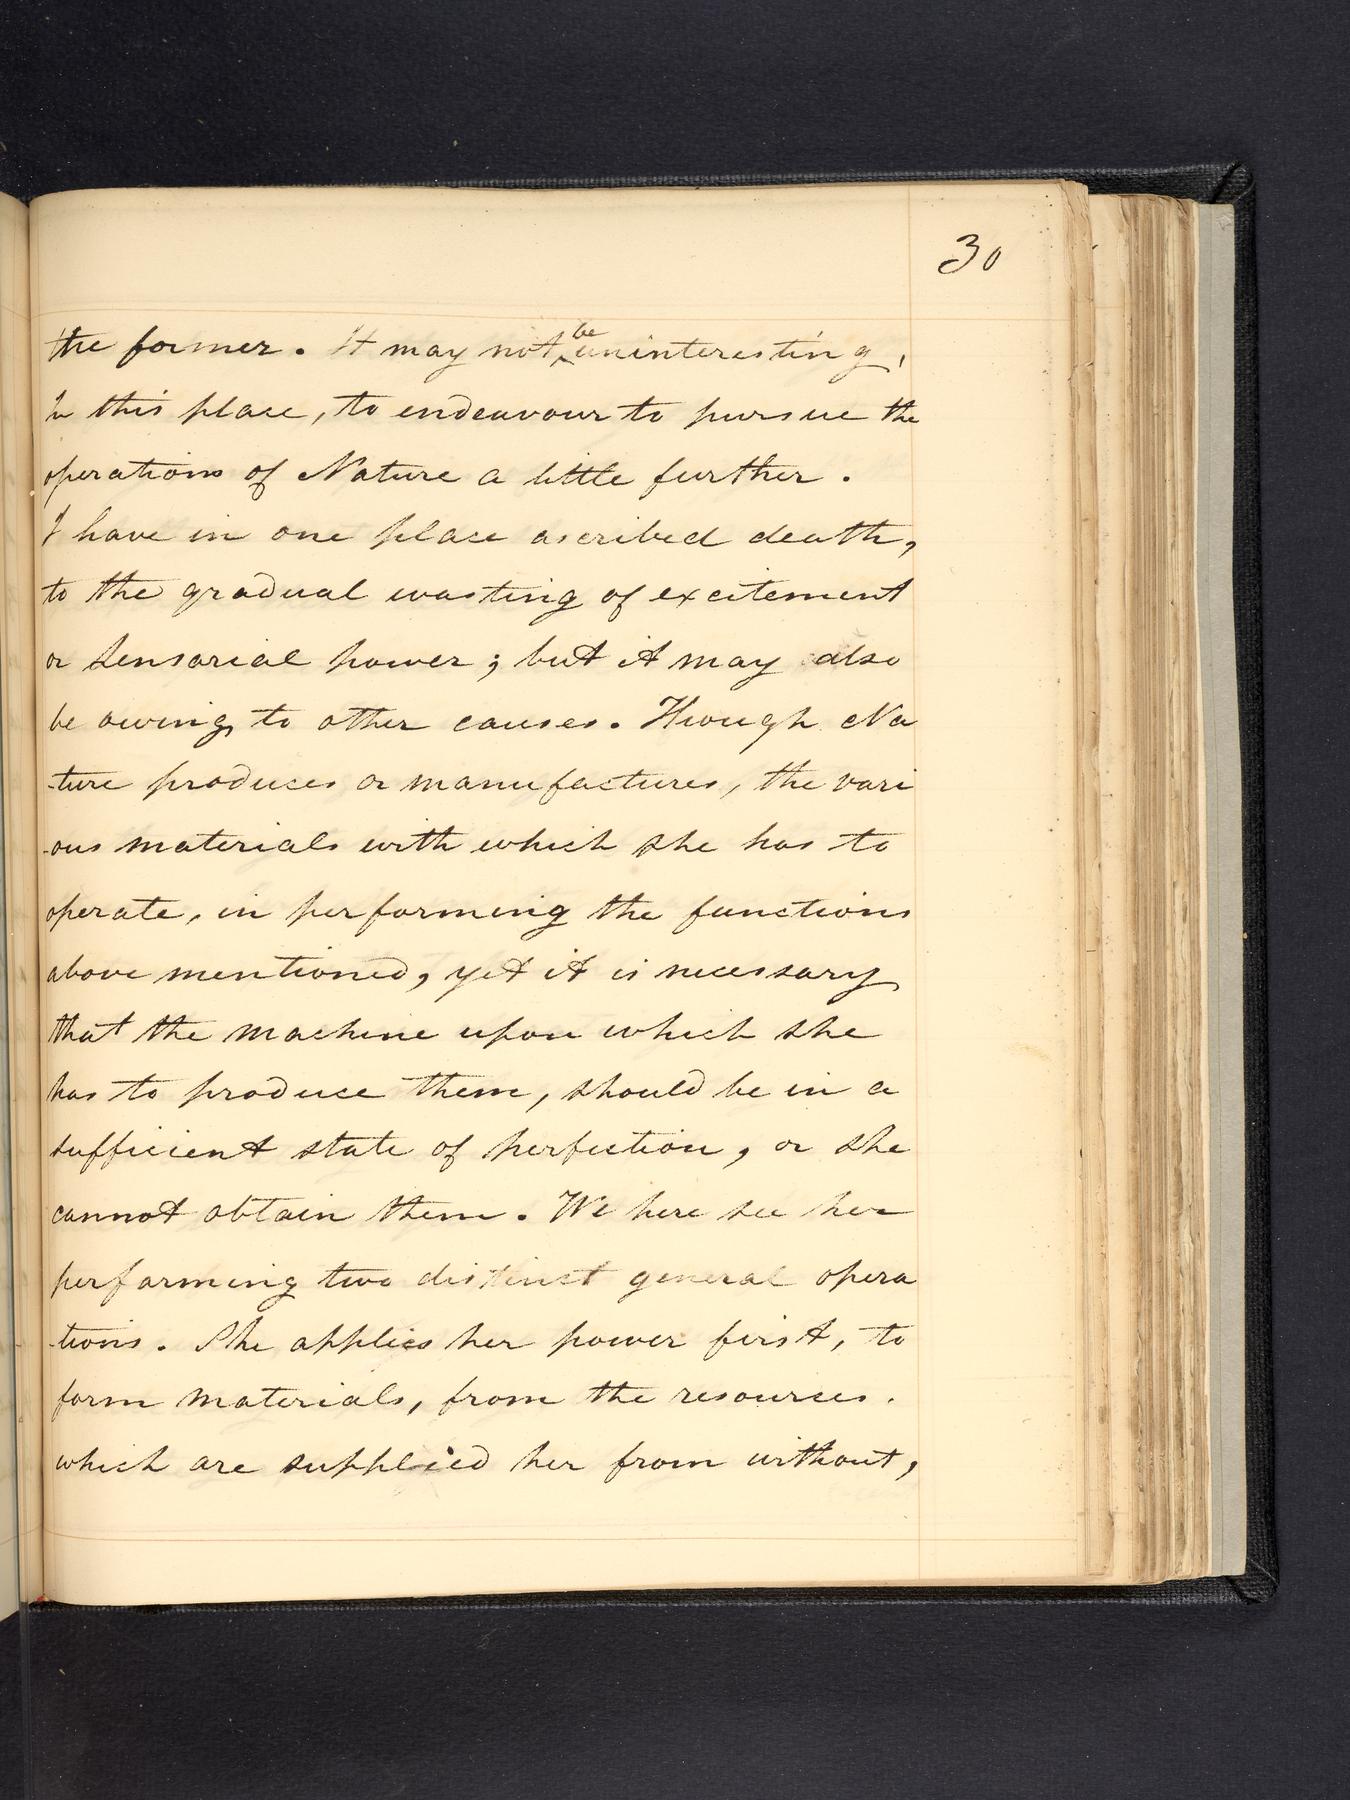 30
the former. It may not be uninteresting,
In this place, to endeavour to pursue the
operations of Nature a little further.
I have in one place ascribed death,
to the gradual wasting of excitement
or sensorial power; but it may also
be owing to other causes. Though Na
-ture produces or manufactures, the vari
-ous materials with which she has to
operate, in performing the functions
above mentioned, yet it is necessary
that the machine upon which she
has to produce them, should be in a
sufficient state of perfection, or she
cannot obtain them. We here see her
performing two distinct general opera
-tions. She applies her power first, to
form materials, from the resources.
which are supplied her from without,